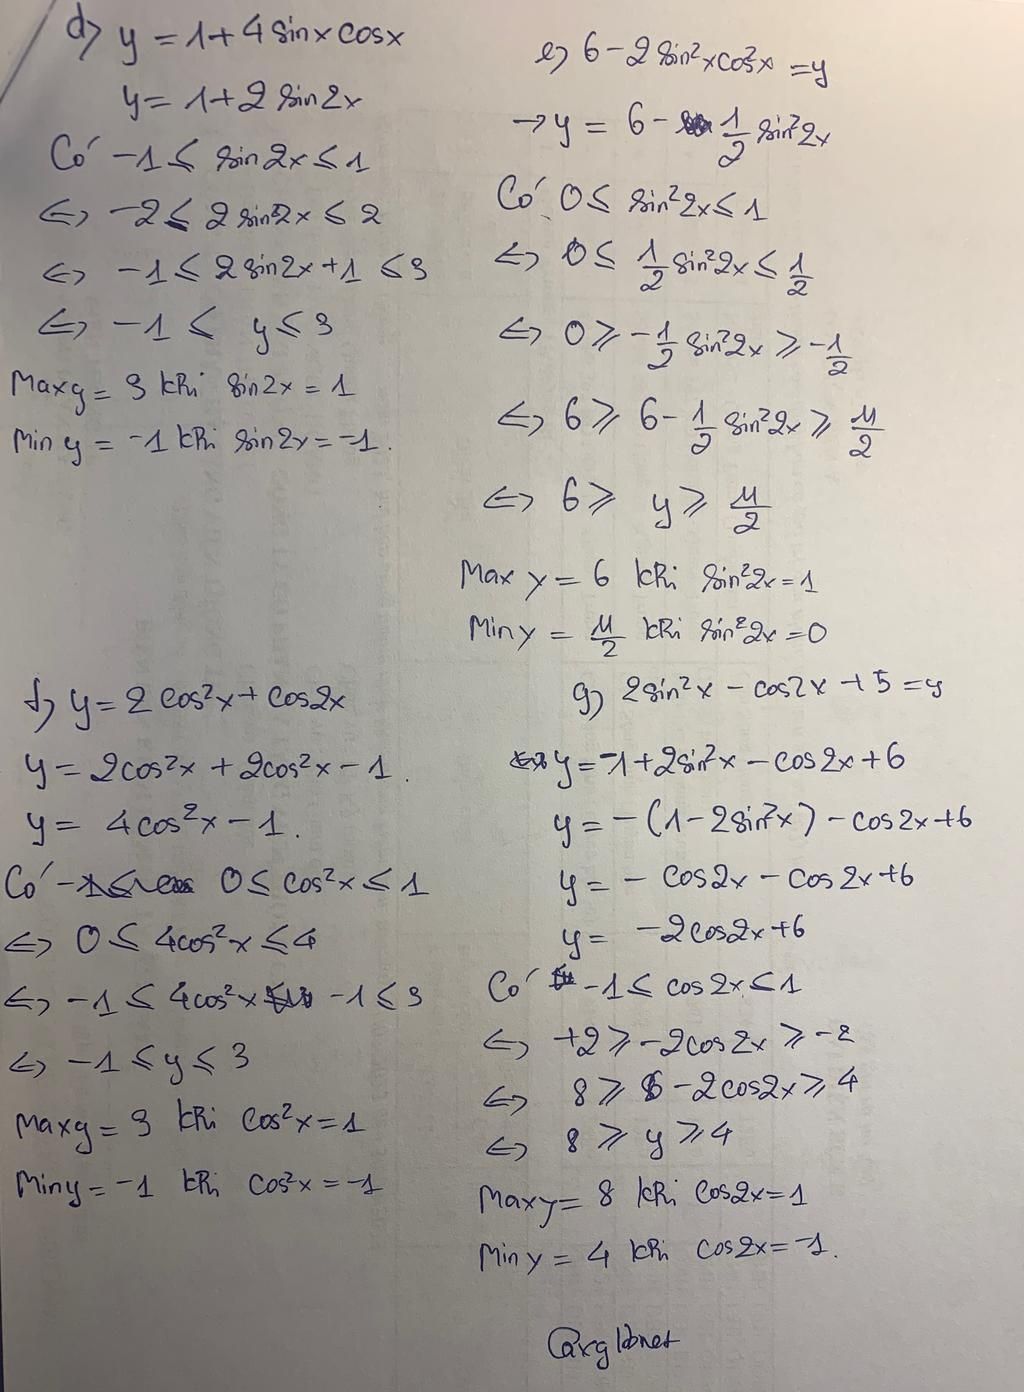 d) y = 1+4 sinx cosx
y = 1+2 sin2x
Có -1 ≤ sin2x ≤ 1
⇔ -2 ≤ 2 sin2x ≤ 2
⇔ -1 ≤ 2 sin2x +1 ≤ 3
⇔ -1 ≤ y ≤ 3
Max y = 3 khi sin2x = 1
Min y = -1 khi sin2x = -1.
e) 6-2 sin²x cos²x = y
→ y = 6 - 1/2 sin²2x
Có 0 ≤ sin²2x ≤ 1
⇔ 0 ≤ 1/2 sin²2x ≤ 1/2
⇔ 0 ≥ -1/2 sin²2x ≥ -1/2
⇔ 6 ≥ 6 - 1/2 sin²2x ≥ 11/2
⇔ 6 ≥ y ≥ 11/2
Max y = 6 khi sin²2x = 1
Min y = 11/2 khi sin²2x = 0
f) y = 2 cos²x + cos2x
y = 2cos²x + 2cos²x - 1.
y = 4cos²x - 1.
Có 0 ≤ cos²x ≤ 1
⇔ 0 ≤ 4cos²x ≤ 4
⇔ -1 ≤ 4cos²x -1 ≤ 3
⇔ -1 ≤ y ≤ 3
Max y = 3 khi cos²x = 1
Min y = -1 khi cos²x = -1
g) 2sin²x - cos2x + 5 = y
y = -1+2sin²x - cos2x + 6
y = -(1-2sin²x) - cos2x + 6
y = - cos2x - cos2x + 6
y = -2cos2x + 6
Có -1 ≤ cos2x ≤ 1
⇔ +2 ≥ -2cos2x ≥ -2
⇔ 8 ≥ 6 - 2cos2x ≥ 4
⇔ 8 ≥ y ≥ 4
Max y = 8 khi cos2x = 1
Min y = 4 khi cos2x = -1.